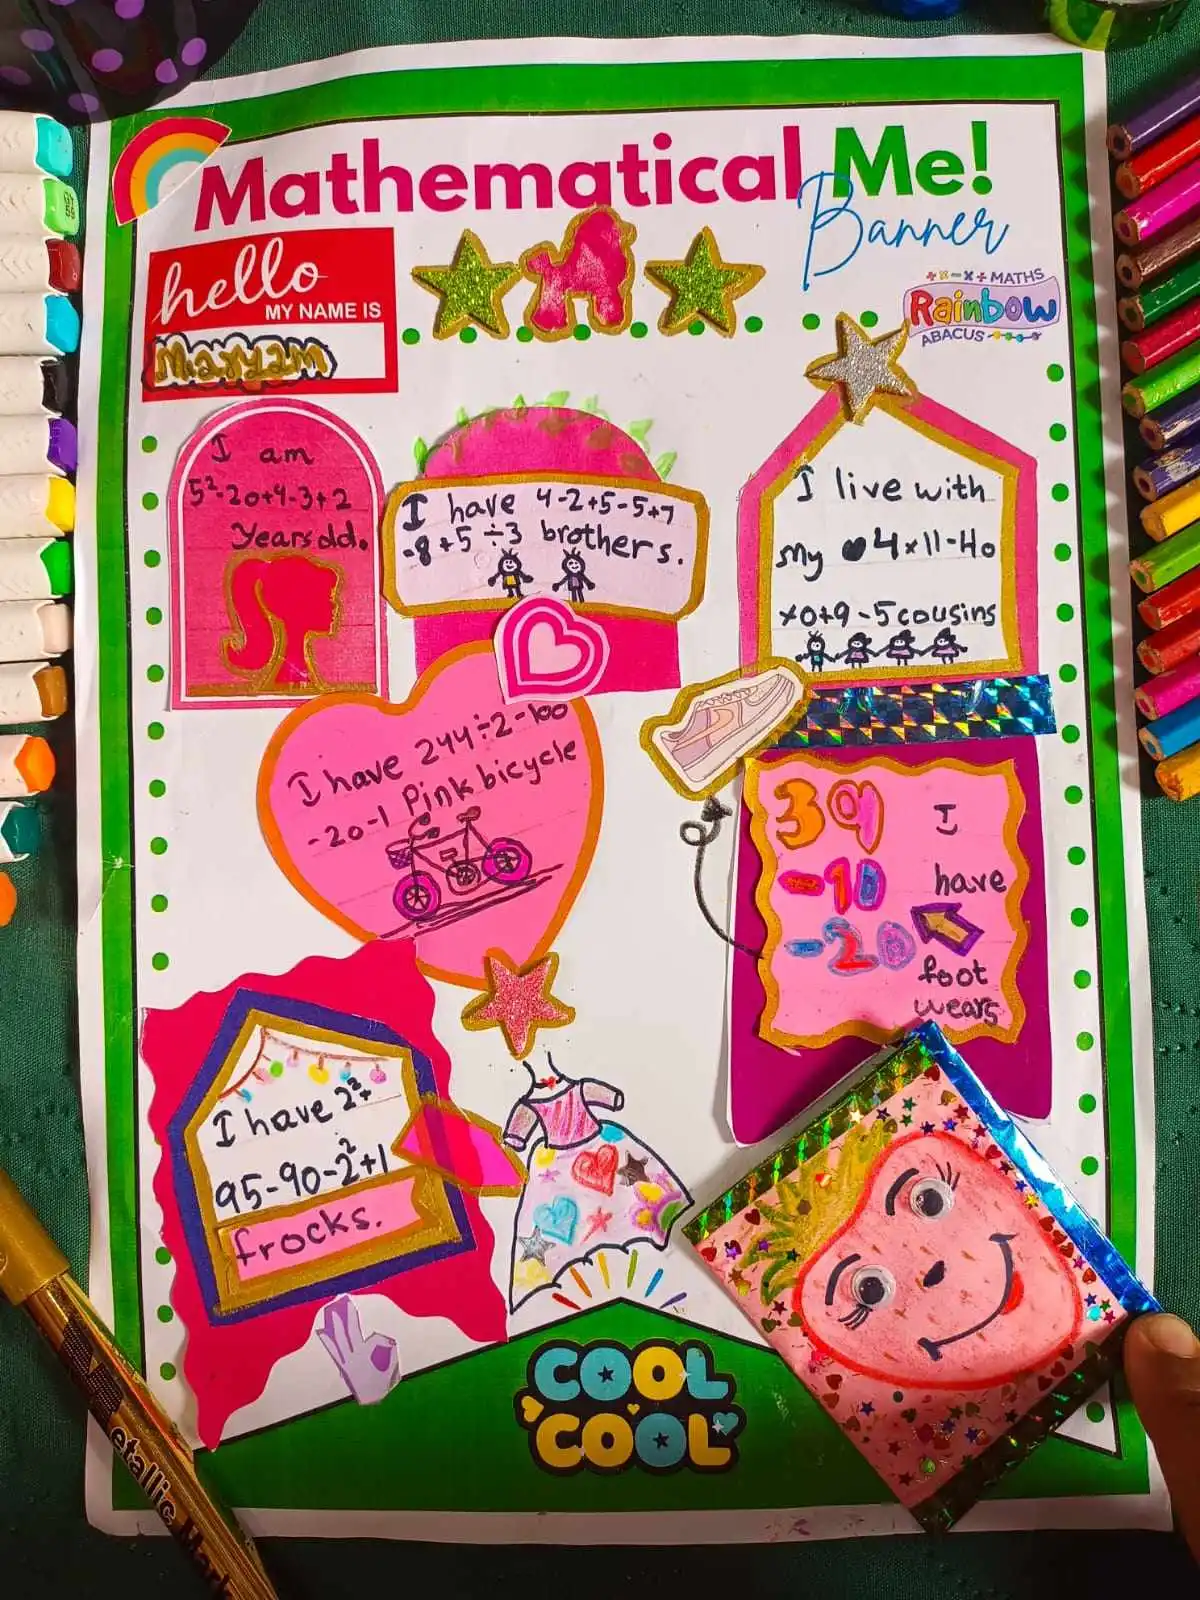 Mathematical Me!
Banner
hello
MY NAME IS
Maryam
+ × − × ÷ MATHS
Rainbow
ABACUS
I am
5²-20+4-3+2
Years old.
I have 4-2+5-5+7
-8+5÷3 brothers.
I live with
my 4×11-40
×0+9-5 cousins
I have 244÷2-100
-20-1 Pink bicycle
39
-10
-20
I
have
foot
wears
I have 2²+
95-90-2²+1
frocks.
COOL
COOL
etallic Mar